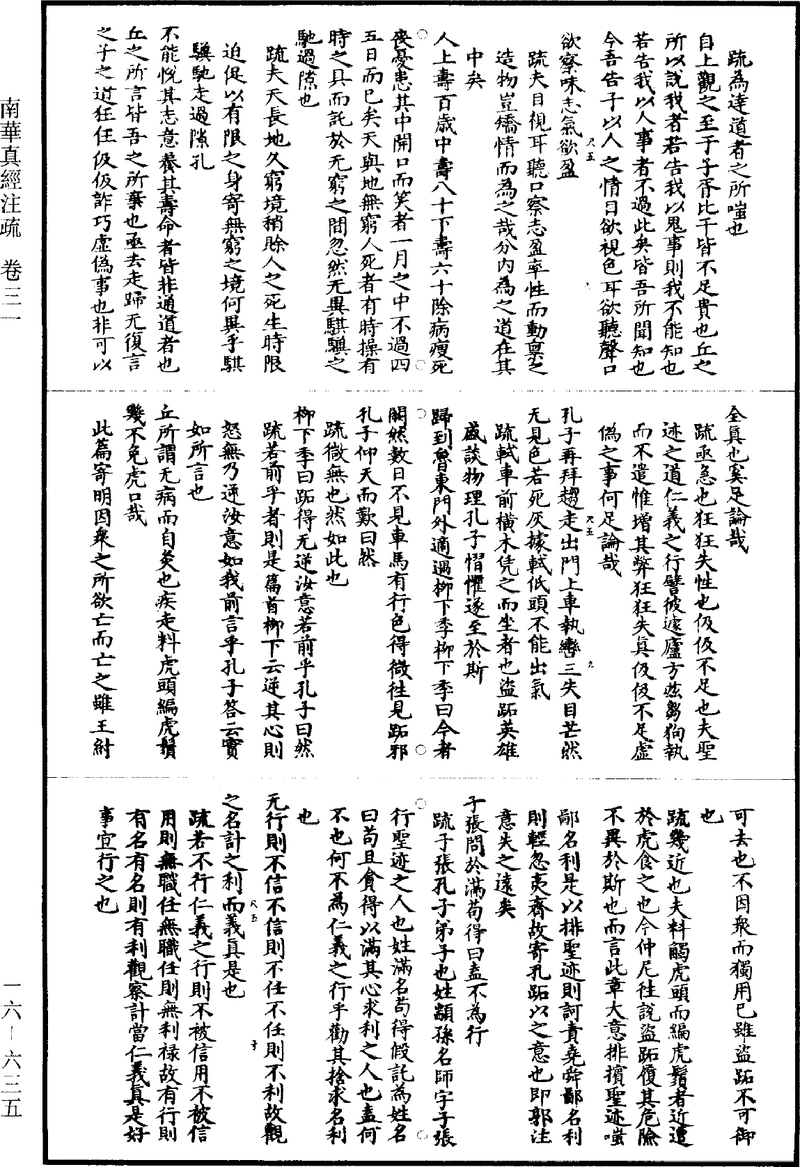 疏為達道者之所嗤也
自上觀之至于子胥比干皆不足貴也丘之
所以說我者若告我以鬼事則我不能知也
若告我以人事者不過此矣皆吾所聞知也
今吾告子以人之情目欲視色耳欲聽聲口
欲察味志氣欲盈
疏夫目視耳聽口察志盈率性而動稟之
造物豈矯情而為之哉分內為之道在其
中矣
人上壽百歲中壽八十下壽六十除病瘦死
喪憂患其中開口而笑者一月之中不過四
五日而已矣天與地無窮人死者有時操有
時之具而託於无窮之間忽然无異騏驥之
馳過隙也
疏夫天長地久窮境稍賒人之死生時限
迫促以有限之身寄無窮之境何異乎騏
驥馳走過隙孔
不能悅其志意養其壽命者皆非通道者也
丘之所言皆吾之所棄也亟去走歸无復言
之子之道狂狂伋伋詐巧虛偽事也非可以
全真也奚足論哉
疏亟急也狂狂失性也伋伋不足也夫聖
迹之道仁義之行譬彼遽廬方茲芻狗執
而不遣惟增其弊狂狂失真伋伋不足虛
偽之事何足論哉
孔子再拜趨走出門上車執轡三失目芒然
无見色若死灰據軾低頭不能出氣
疏軾車前橫木凭之而坐者也盜跖英雄
盛談物理孔子慴懼遂至於斯
歸到魯東門外適遇柳下季柳下季曰今者
闕然數日不見車馬有行色得微往見跖邪
孔子仰天而歎曰然
疏微無也然如此也
柳下季曰跖得无逆汝意若前乎孔子曰然
疏若前乎者則是篇首柳下云逆其心則
怒無乃逆汝意如我前言乎孔子答云實
如所言也
丘所謂无病而自灸也疾走料虎頭編虎鬚
幾不免虎口哉
此篇寄明因眾之所欲亡而亡之雖王紂
可去也不因衆而獨用己雖盜跖不可御
也
疏幾近也夫料觸虎頭而編虎鬚者近遭
於虎食之也今仲尼往說盜跖履其危險
不異於斯也而言此章大意排擯聖迹嗤
鄙名利是以排聖迹則訶責堯舜鄙名利
則輕忽夷齊故寄孔跖以之意也即郭注
意失之遠矣
子張問於滿苟得曰盍不為行
疏子張孔子弟子也姓顓孫名師字子張
行聖迹之人也姓滿名苟得假託為姓名
曰苟且貪得以滿其心求利之人也盍何
不也何不為仁義之行乎勸其捨求名利
也
无行則不信不信則不任不任則不利故觀
之名計之利而義真是也
疏若不行仁義之行則不被信用不被信
用則無職任無職任則無利祿故有行則
有名有名則有利觀察計當仁義真是好
事宜行之也
南華真經注疏 卷三一
一六－六三五